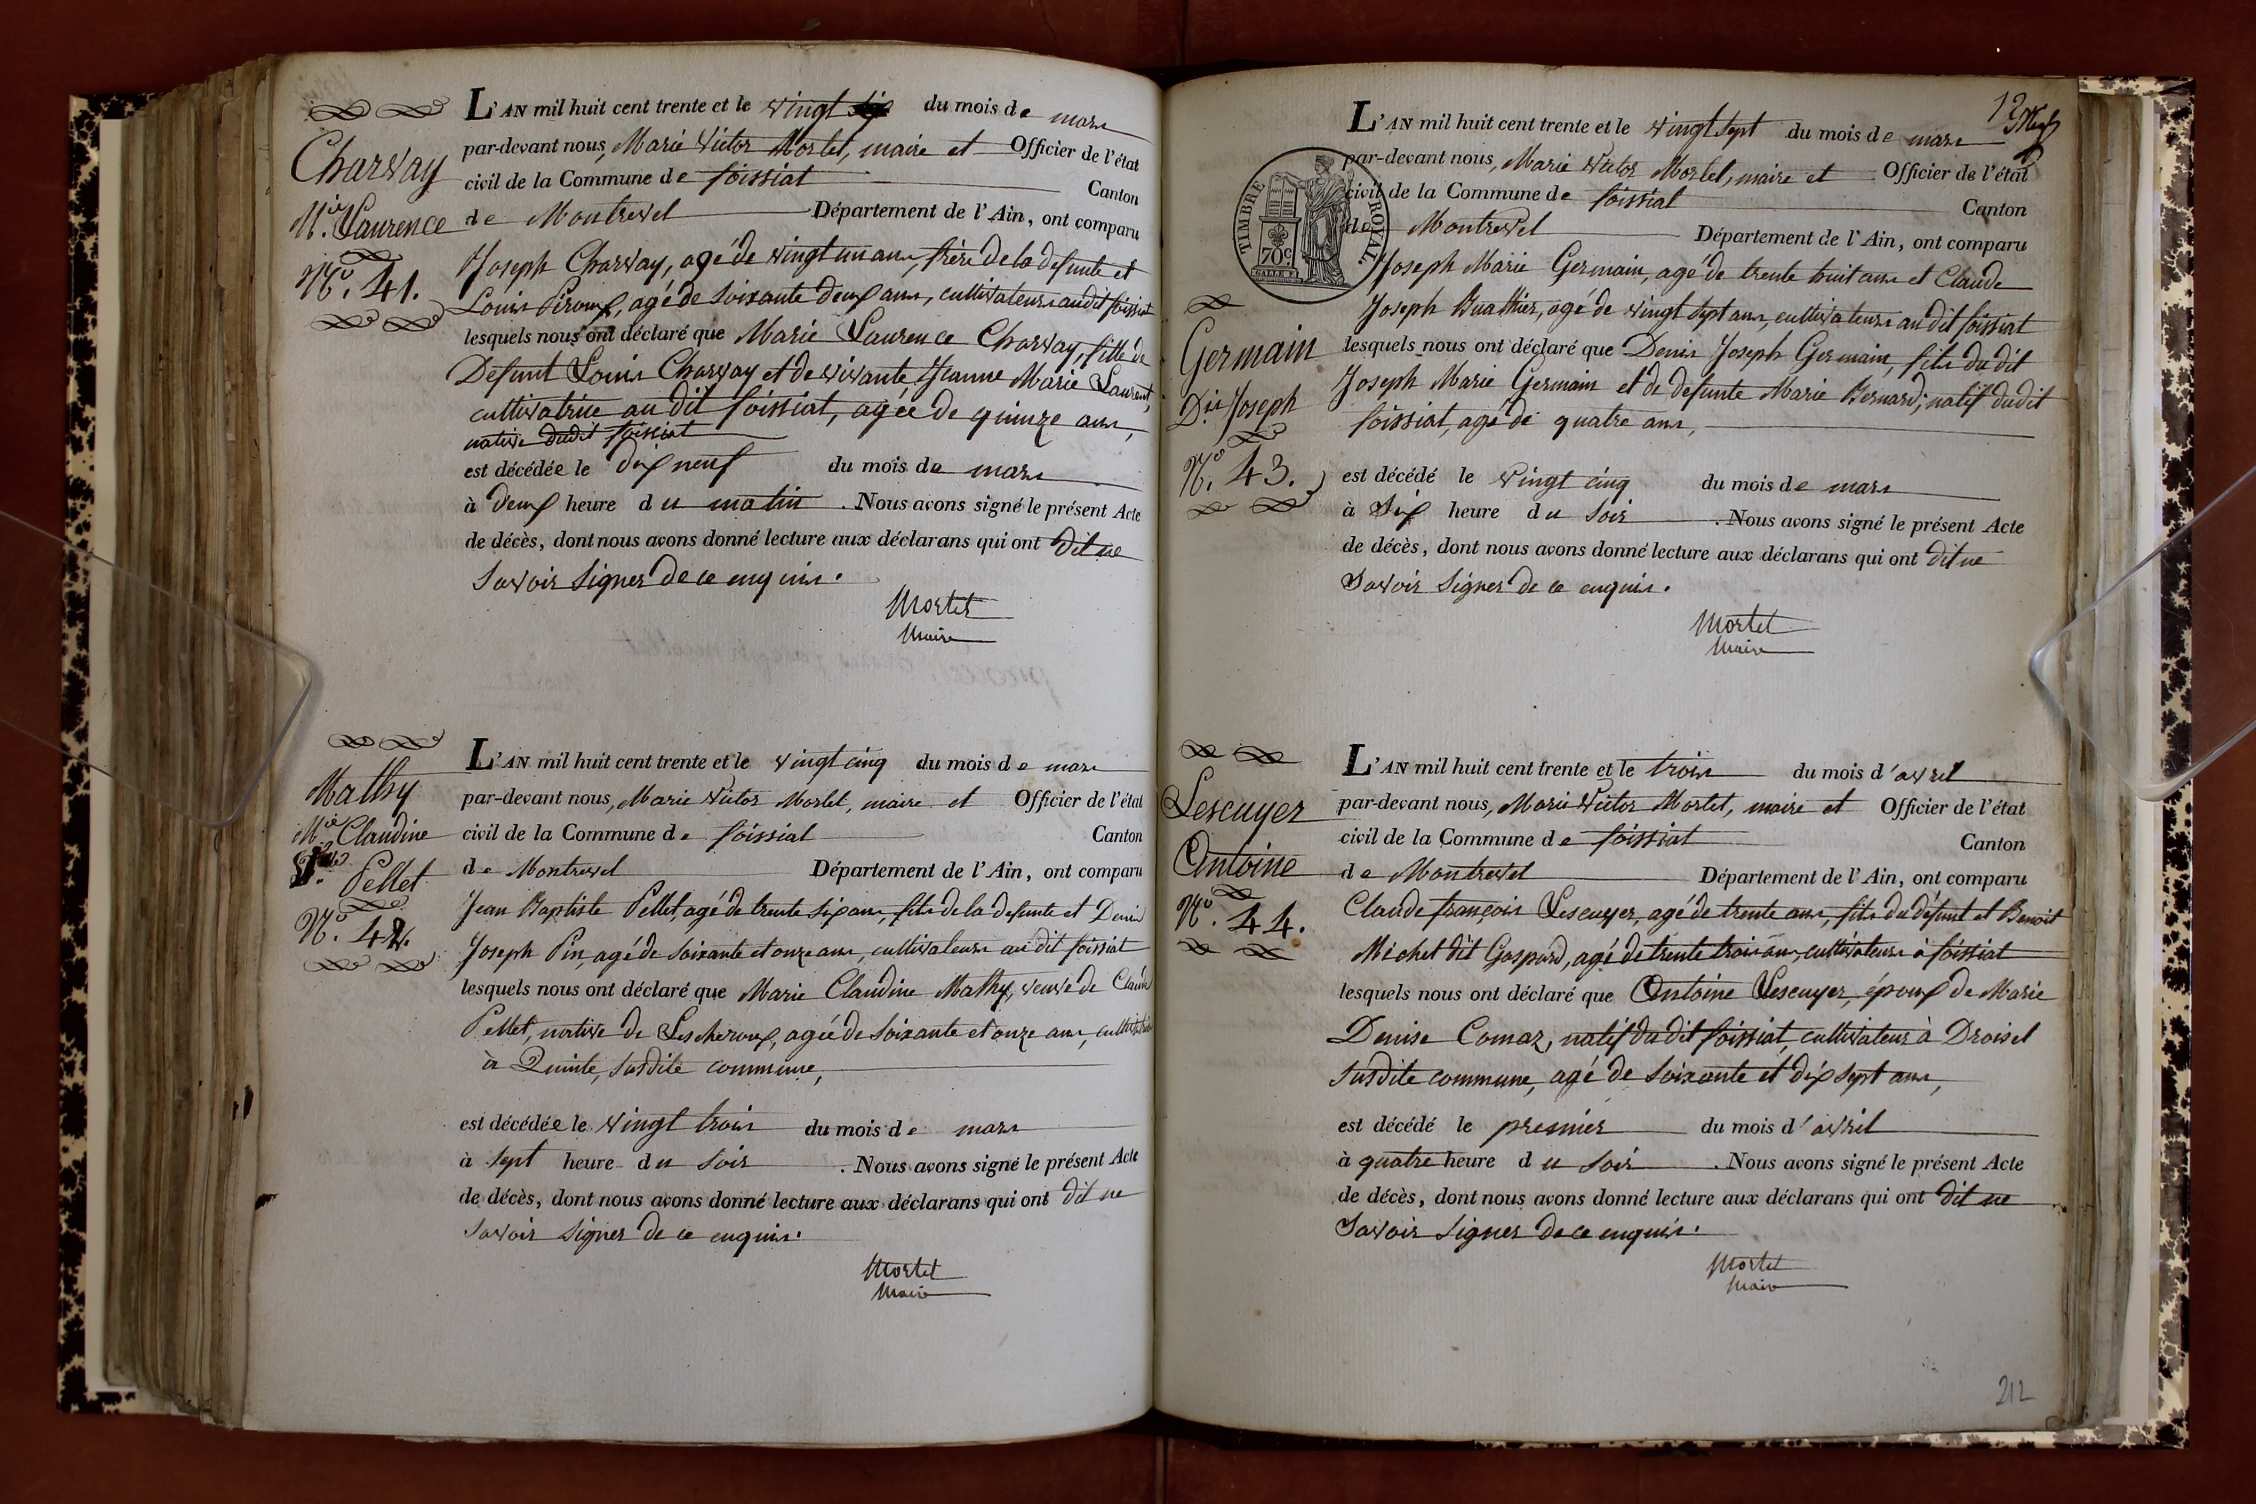 Charvay
M.ie Laurence
N.o 41.
L'AN mil huit cent trente et le vingt du mois de mars
par-devant nous, Marie Victor Mortel, maire et Officier de l'état
civil de la Commune de foissiat Canton
de Montrevel Département de l'Ain, ont comparu
Joseph Charvay, agé de vingt un ans, frère de la defunte et
Louis Piroux, agé de soixante deux ans, cultivateurs audit foissiat
lesquels nous ont déclaré que Marie Laurence Charvay, fille de
Defunt Louis Charvay et de vivante Jeanne Marie Laurent,
cultivatrice au dit foissiat, agée de quinze ans,
native dudit foissiat
est décédée le dix neuf du mois de mars
à deux heure du matin . Nous avons signé le présent Acte
de décès, dont nous avons donné lecture aux déclarans qui ont dit ne
savoir signer de ce enquis.
Mortel
Maire
Mathy
M.ie Claudine
Pellet
N.o 42.
L'AN mil huit cent trente et le vingt cinq du mois de mars
par-devant nous, Marie Victor Mortel, maire et Officier de l'état
civil de la Commune de foissiat Canton
de Montrevel Département de l'Ain, ont comparu
Jean Baptiste Pellet, agé de trente six ans, fils de la defunte et Denis
Joseph Pin, agé de soixante et onze ans, cultivateurs au dit foissiat
lesquels nous ont déclaré que Marie Claudine Mathy, veuve de Claude
Pellet, native de Lescheroux, agée de soixante et onze ans, cultivatrice
à Quinte, susdite commune,
est décédée le vingt trois du mois de mars
à sept heure du soir . Nous avons signé le présent Acte
de décès, dont nous avons donné lecture aux déclarans qui ont dit ne
savoir signer de ce enquis.
Mortel
Maire
12
TIMBRE ROYAL
70c
Germain
D.is Joseph
N.o 43.
L'AN mil huit cent trente et le vingt sept du mois de mars
par-devant nous, Marie Victor Mortel, maire et Officier de l'état
civil de la Commune de foissiat Canton
de Montrevel Département de l'Ain, ont comparu
Joseph Marie Germain, agé de trente huit ans et Claude
Joseph Buathier, agé de vingt sept ans, cultivateurs au dit foissiat
lesquels nous ont déclaré que Denis Joseph Germain, fils du dit
Joseph Marie Germain et de defunte Marie Bernard, natif dudit
foissiat, agé de quatre ans,
est décédé le vingt cinq du mois de mars
à six heure du soir . Nous avons signé le présent Acte
de décès, dont nous avons donné lecture aux déclarans qui ont dit ne
savoir signer de ce enquis.
Mortel
Maire
Lescuyer
Antoine
N.o 44.
L'AN mil huit cent trente et le trois du mois d'avril
par-devant nous, Marie Victor Mortel, maire et Officier de l'état
civil de la Commune de foissiat Canton
de Montrevel Département de l'Ain, ont comparu
Claude françois Lescuyer, agé de trente ans, fils du défunt et Benoit
Michel dit Gaspard, agé de trente trois ans, cultivateurs à foissiat
lesquels nous ont déclaré que Antoine Lescuyer, époux de Marie
Denise Comaz, natif du dit foissiat, cultivateur à Droisel
susdite commune, agé de soixante et dix sept ans,
est décédé le premier du mois d'avril
à quatre heure du soir . Nous avons signé le présent Acte
de décès, dont nous avons donné lecture aux déclarans qui ont dit ne
savoir signer de ce enquis.
Mortel
Maire
212